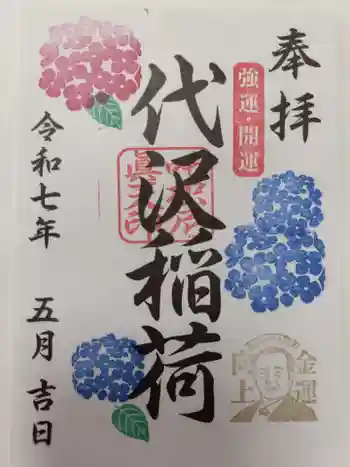 奉拝
強運・開運
代沢稲荷
令和七年 五月 吉日
金運
向上